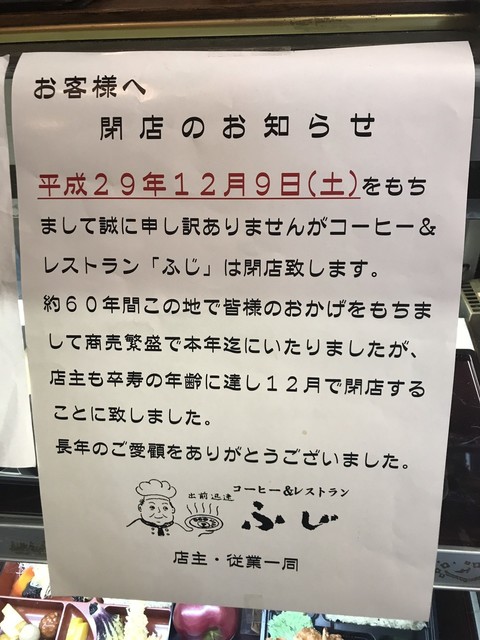 お客様へ
閉店のお知らせ
平成29年12月9日(土)をもち
まして誠に申し訳ありませんがコーヒー&
レストラン「ふじ」は閉店致します。
約60年間この地で皆様のおかげをもちま
して商売繁盛で本年迄にいたりましたが、
店主も卒寿の年齢に達し12月で閉店する
ことに致しました。
長年のご愛顧をありがとうございました。
出前迅速
コーヒー&レストラン
ふじ
店主・従業一同